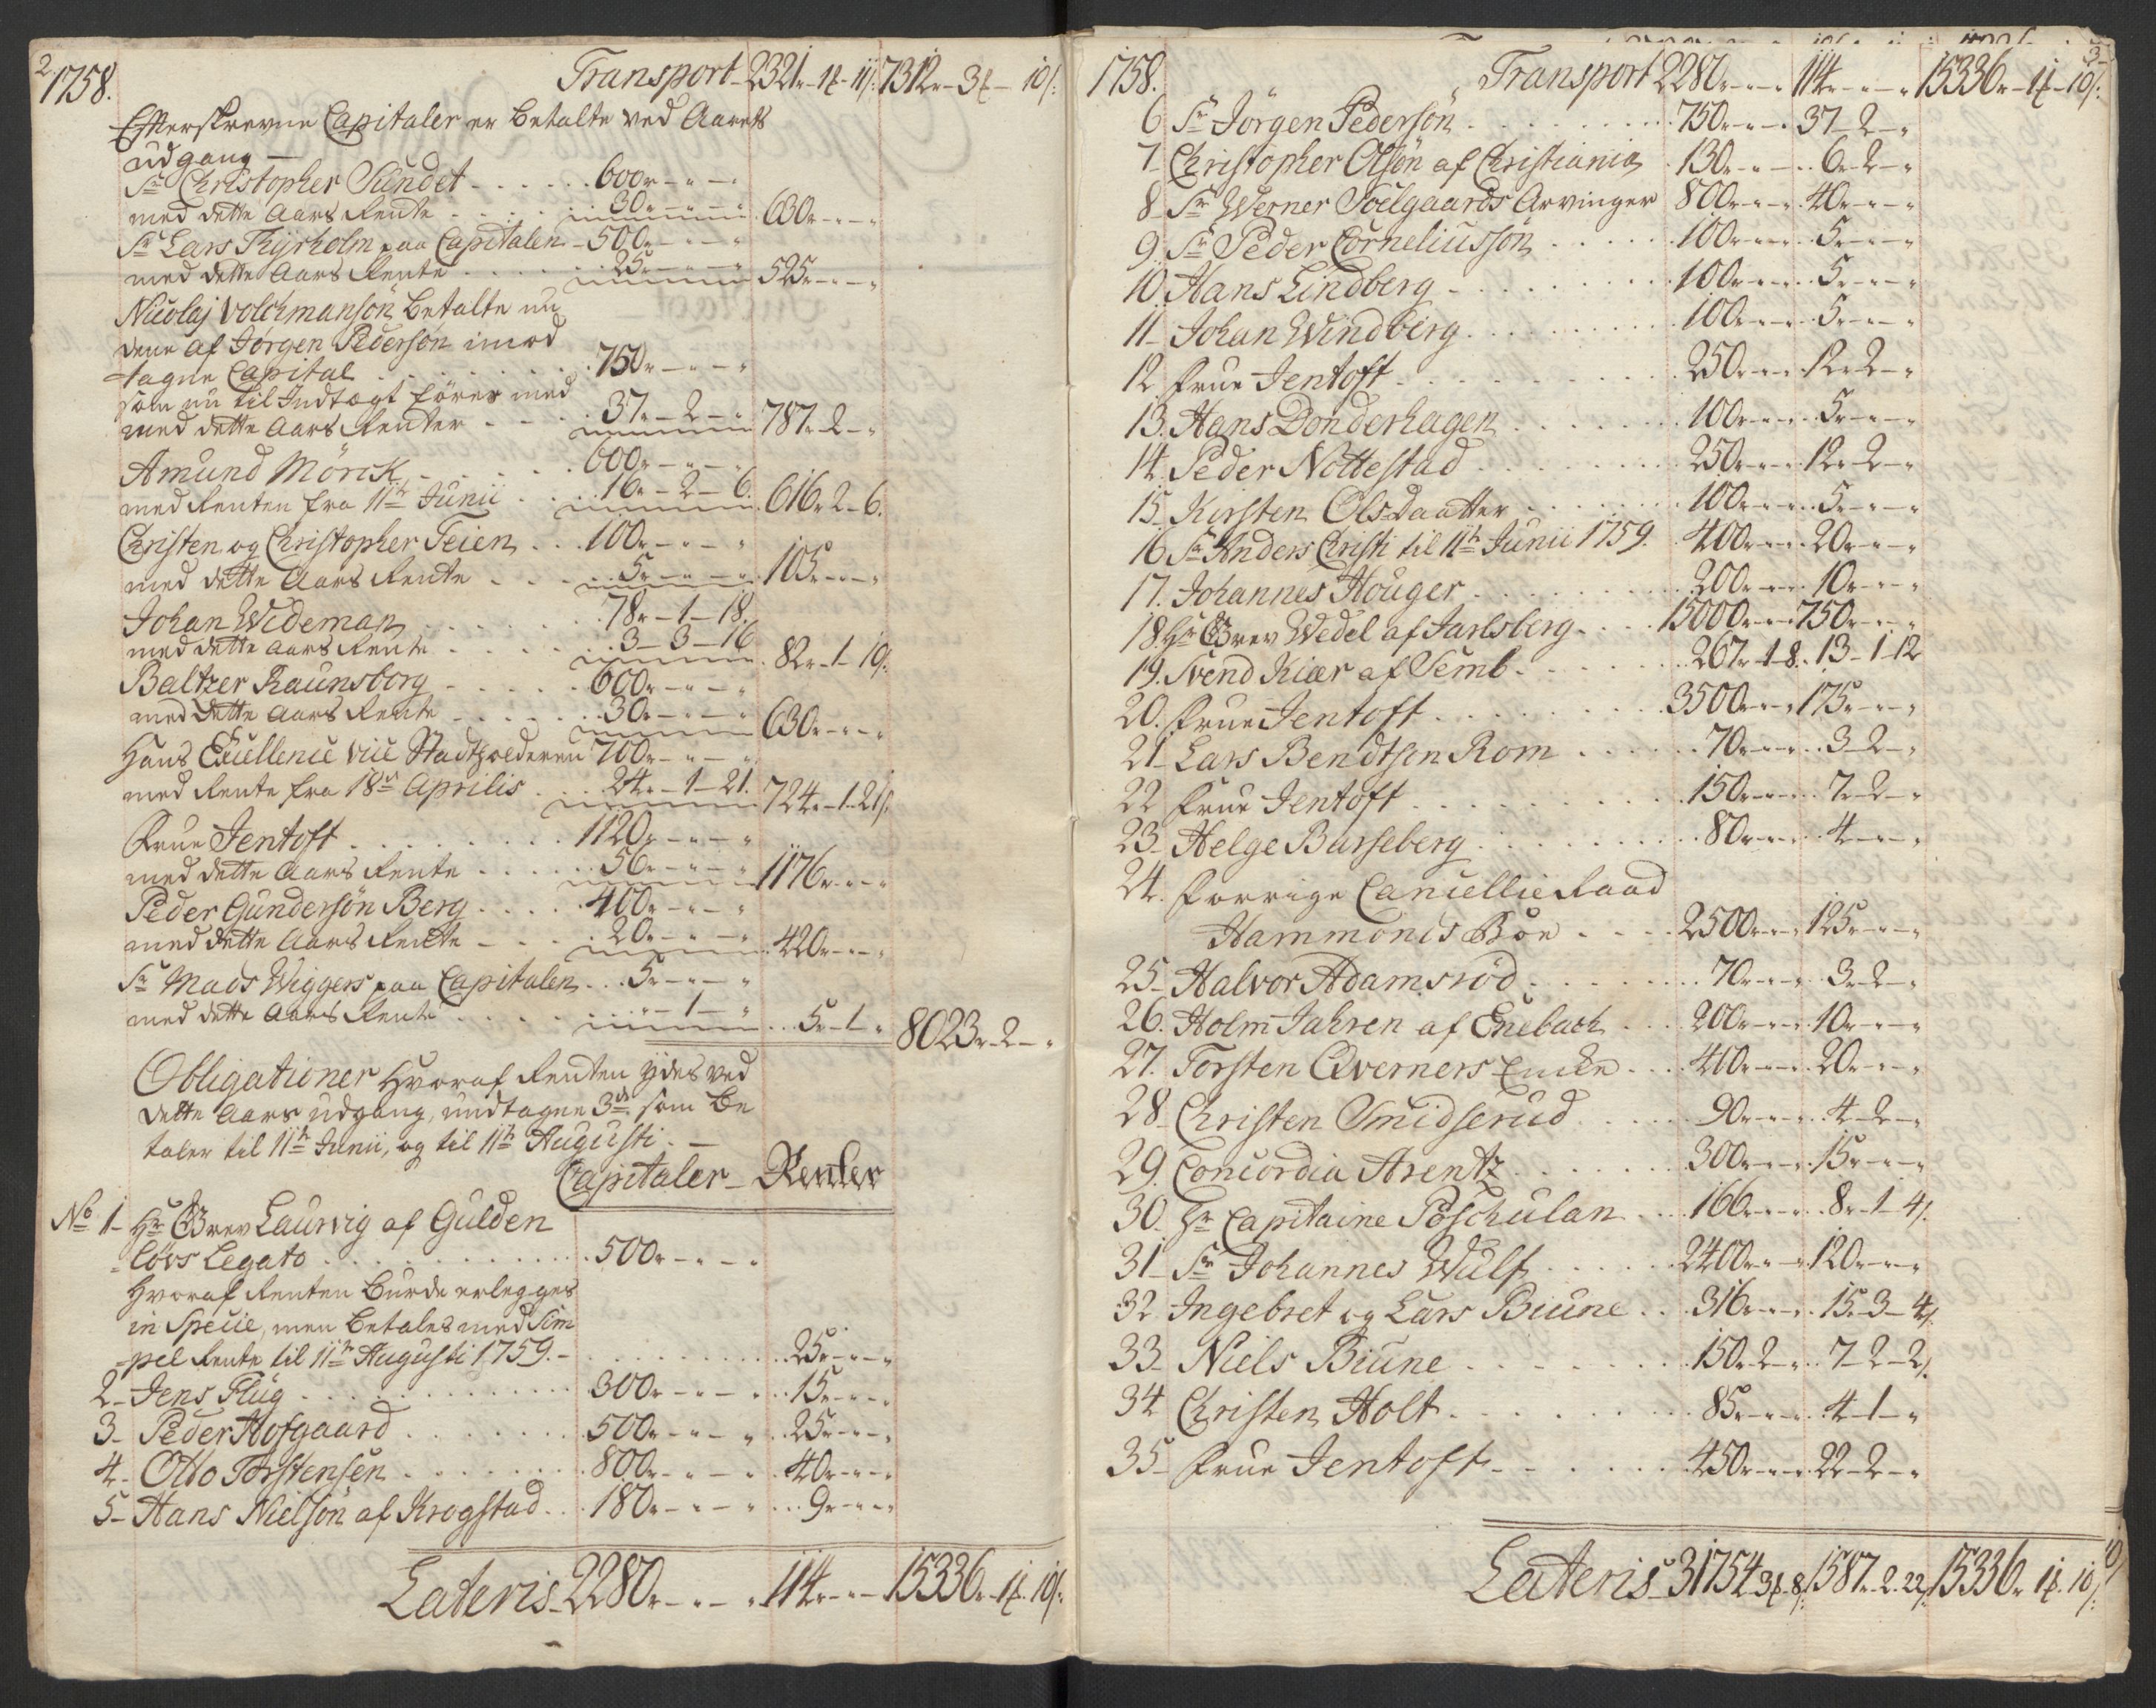 2
1758.
Transport 2321r-1ß-11/: 7312r-3ß-10/:
Efterskrevne Capitaler er betalte ved Aarets
udgang —
Sr Christopher Sundet 600r-"-"
med dette Aars Rente 30r-"-" 630r-"-"
Sr Lars Thyrholm paa Capitalen 500r-"-"
med dette Aars Rente 25r-"-" 525r-"-"
Nicolaj Volchmansön betalte nu
denne af Jørgen Pedersön imod
tagne Capital 750r-"-"
som nu til Indtægt föres med
med dette Aars Renter 37r-2-" 787r-2-"
Amund Mörck 600r-"-"
med Renten fra 11te Junii 16r-2-6. 616r-2-6.
Christen og Christopher Teien 100r-"-"
med dette Aars Rente 5r-"-" 105r-"-"
Johan Wideman 78r-1-18.
med dette Aars Rente 3-3-16 82r-1-10/:
Baltzer Raunsborg 600r-"-"
med dette Aars Rente 30r-"-" 630r-"-"
Hans Excellence Vice Stadtholderen 700r-"-"
med Rente fra 18de Aprilis 24r-1-21. 724r-1-21/:
Frue Jentoft 1120r-"-"
med dette Aars Rente 56r-"-" 1176r-"-"
Peder Gundersön Berg 400r-"-"
med dette Aars Rente 20r-"-" 420r-"-"
Sr Mads Wiggers paa Capitalen 5r-"-"
med dette Aars Rente "-1-" 5r-1-" 8023r-2-"
Obligationer hvoraf Renten ydes ved
dette Aars udgang, undtagne 3de som be
taler til 11te Junii, og til 11te Augusti. —
Capitaler Renter
No 1- Hr Grev Laurvig af Gulden
löws Legato 500r-"-"
hvoraf Renten burde erlegges
in Specie, men betales med Sim
pel Rente til 11te Augusti 1759. 25r-"-"
2- Jens Flug 300r-"-" 15r-"-"
3- Peder Hofgaard 500r-"-" 25r-"-"
4- Otto Torstensen 800r-"-" 40r-"-"
5- Hans Nielsön af Krogstad 180r-"-" 9r-"-"
Lateris 2280r-"-" 114r-"-" 15336r-1ß-10/:
3
1758.
Transport 2280r-"-" 114r-"-" 15336r-1ß-10/:
6 Sr Jörgen Pedersön 750r-"-" 37-2-"
7- Christopher Olsön af Christiania 130r-"-" 6r-2-"
8- Sr Werner Soelgaards Arvinger 800r-"-" 40r-"-"
9 Sr Peder Corneliussön 100r-"-" 5r-"-"
10. Hans Lindberg 100r-"-" 5r-"-"
11- Johan Windberg 100r-"-" 5r-"-"
12. Frue Jentoft 250r-"-" 12r-2-"
13. Hans Donderhagen 100r-"-" 5r-"-"
14. Peder Nottestad 250r-"-" 12r-2-"
15. Kirsten Olsdaatter 100r-"-" 5r-"-"
16 Sr Anders Christi til 11te Junii 1759. 400r-"-" 20r-"-"
17. Johannes Houger 200r-"-" 10r-"-"
18. Hr Grev Wedel af Jarlsberg 15000r-"-" 750r-"-"
19. Svend Kiær af Semb 267r-1-8. 13-1-12
20. Frue Jentoft 3500r-"-" 175r-"-"
21- Lars Bendtsen Rom 70r-"-" 3-2-"
22 Frue Jentoft 150r-"-" 7-2-"
23. Helge Barseberg 80r-"-" 4-"-"
24. Forrige Cancellie Raad
Hammonds Boe 2500r-"-" 125r-"-"
25- Halvor Adamsröd 70r-"-" 3-2-"
26. Holm Jahren af Enebach 200r-"-" 10r-"-"
27. Torsten Qverners Encke 400r-"-" 20r-"-"
28- Christen Smidserud 90r-"-" 4-2-"
29. Concordia Arentz 300r-"-" 15r-"-"
30. Hr Capitaine Poschulan 166r-"-" 8r-1-4/:
31- Sr Johannes Wulf 2400r-"-" 120r-"-"
32 Ingebret og Lars Biune 316r-"-" 15-3-4/:
33- Niels Biune 150r-2-" 7-2-2/:
34 Christen Holt 85r-"-" 4-1-"
35- Frue Jentoft 450r-"-" 22-2-"
Lateris 31754-3ß-8/: 1587r-2-22/: 15336r-1ß-10/: